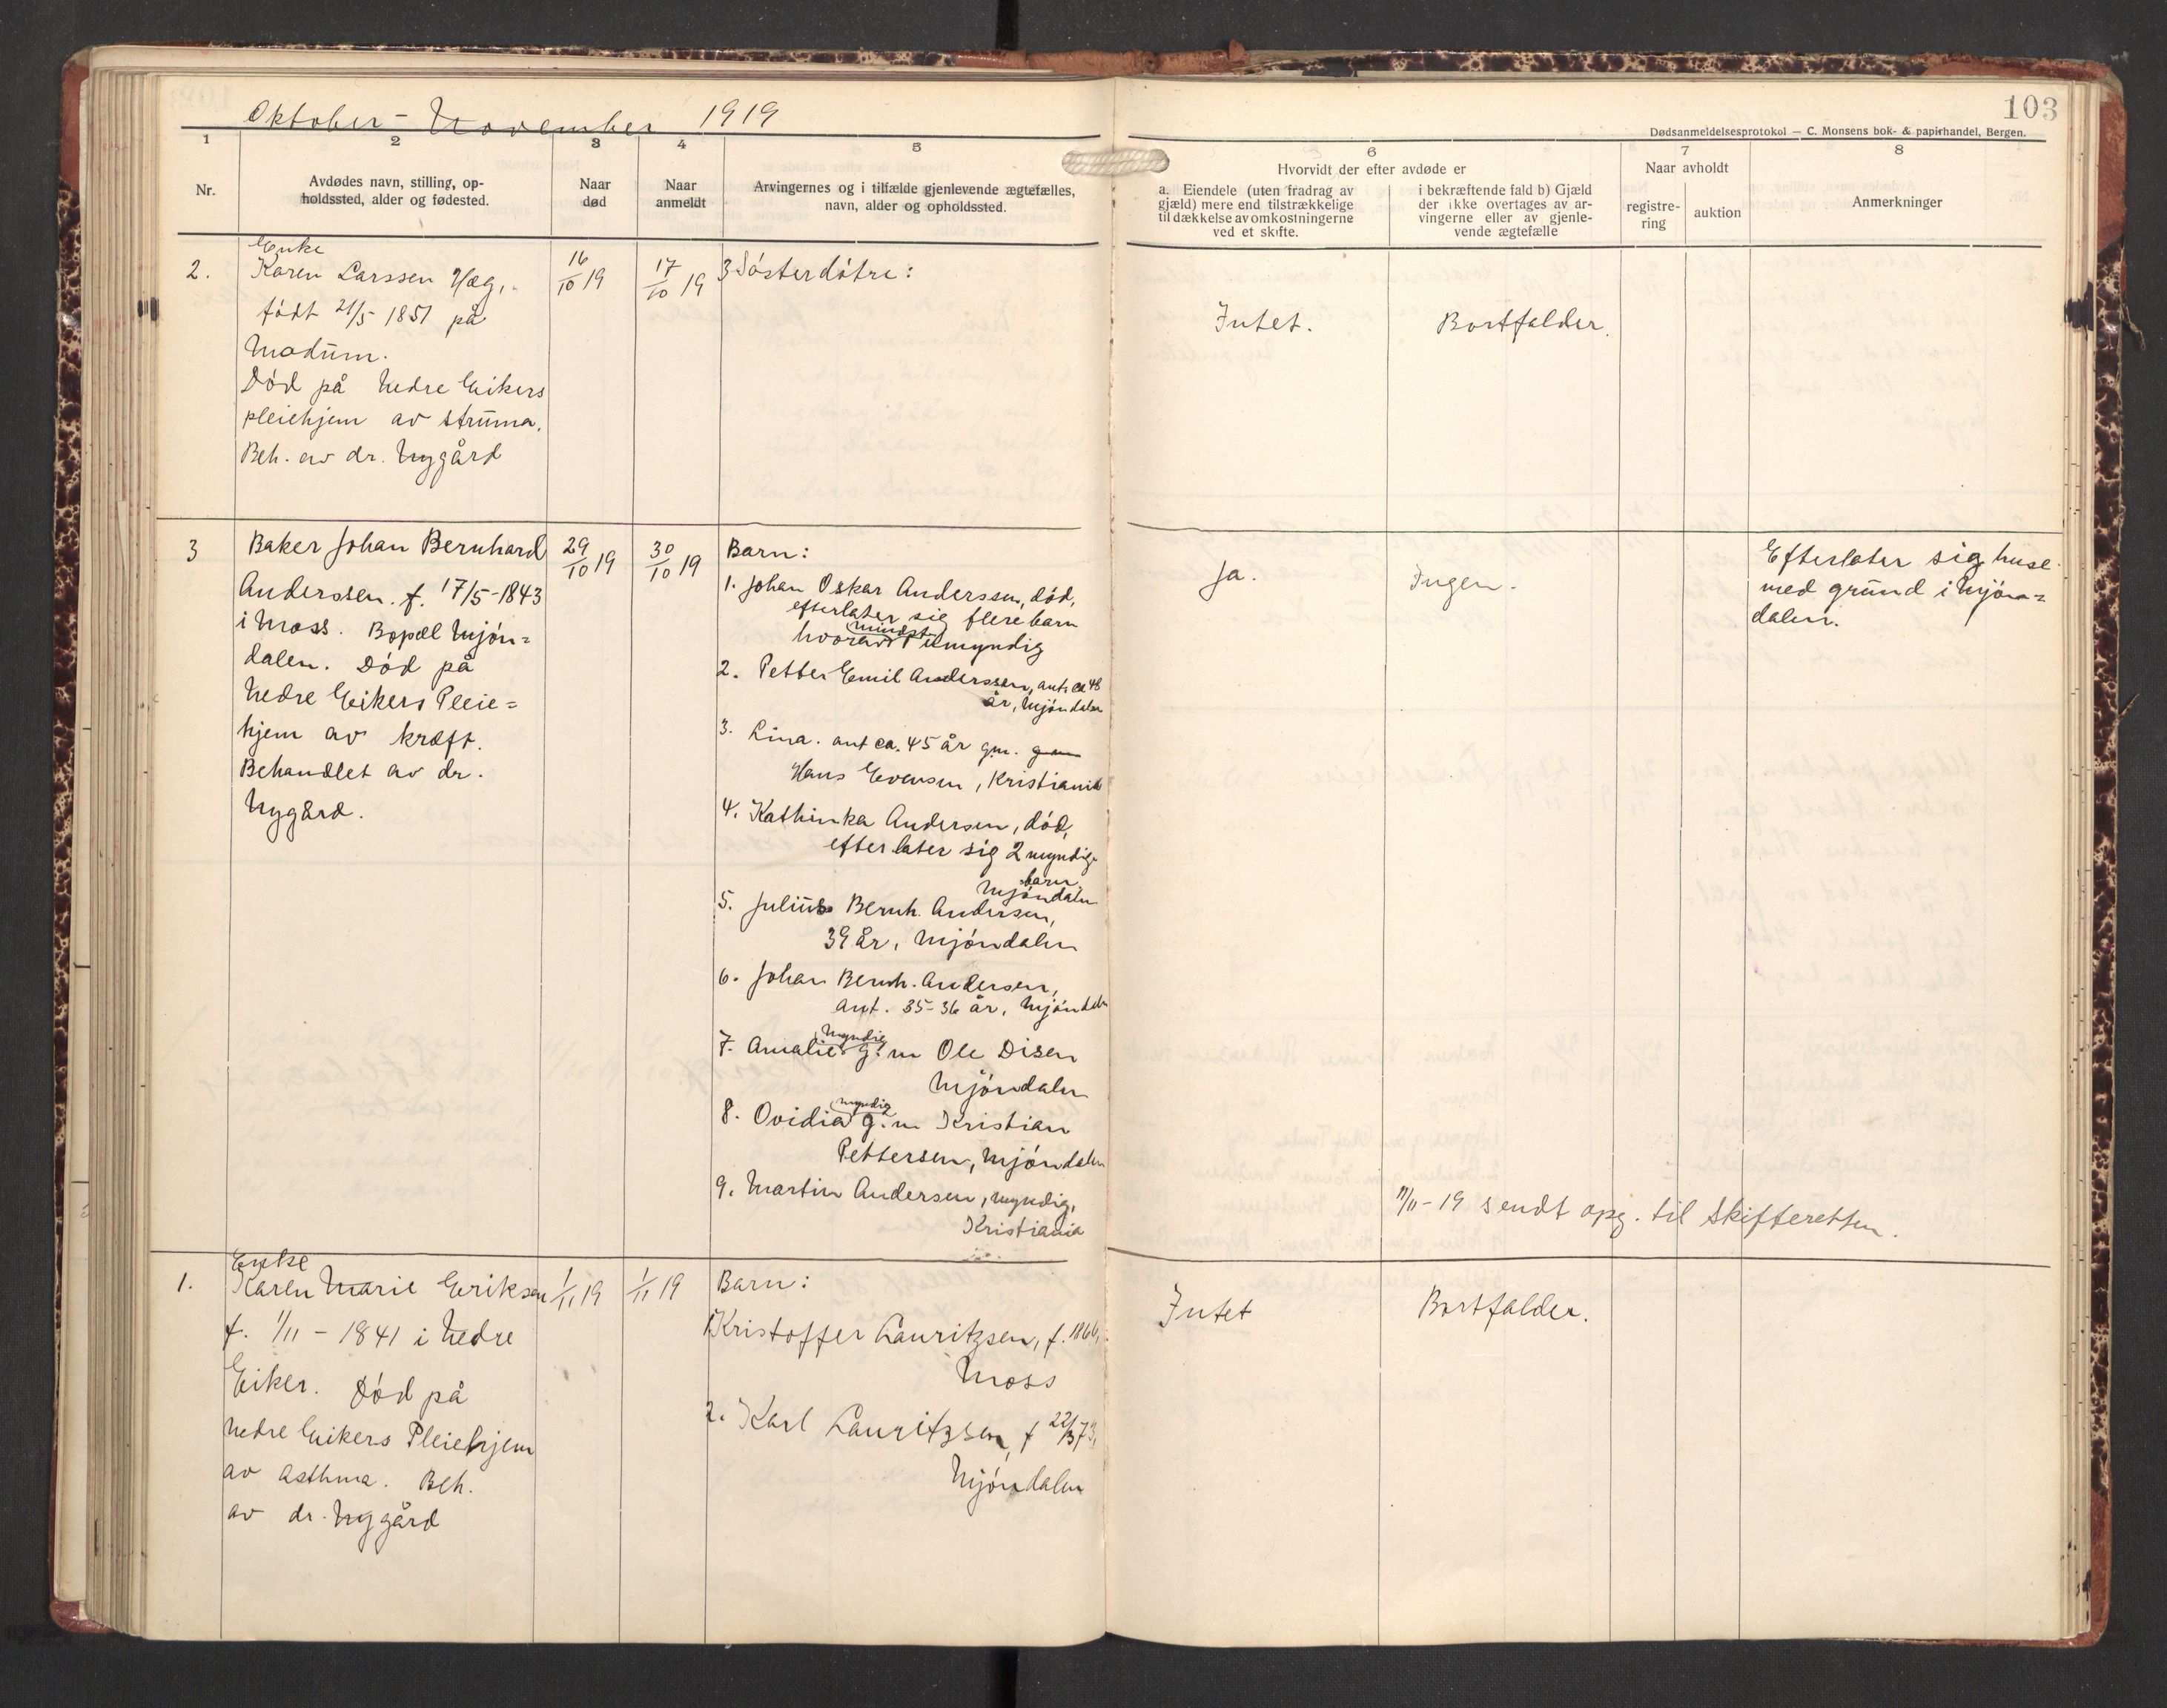 Oktober - November 1919
103
Dødsanmeldelsesprotokol — C. Monsens bok- & papirhandel, Bergen.
1
2
3
4
5
6
7
8
Nr.
Avdødes navn, stilling, op-
holdssted, alder og fødested.
Naar
død
Naar
anmeldt
Arvingernes og i tilfælde gjenlevende ægtefælles,
navn, alder og opholdssted.
Hvorvidt der efter avdøde er
a. Eiendele (uten fradrag av
gjæld) mere end tilstrækkelige
til dækkelse av omkostningerne
ved et skifte.
i bekræftende fald b) Gjæld
der ikke overtages av ar-
vingerne eller av gjenle-
vende ægtefælle
Naar avholdt
registre-
ring
auktion
Anmerkninger
2.
Enke
Karen Larssen Hæg,
født 21/5 1851 på
Modum.
Død på Nedre Eikers
pleiehjem av struma.
Beh. av dr. Nygård
16/10 19
17/10 19
3 Søsterdøtre:
Intet.
Bortfalder.
3
Baker Johan Bernhard
Anderssen. f. 17/5-1843
i Moss. Bopæl Mjøn=
dalen. Død på
Nedre Eikers Pleie=
hjem av kræft.
Behandlet av dr.
Nygård.
29/10 19
30/10 19
Barn:
1. Johan Oskar Anderssen, død,
efterlater sig flere barn
mindst
hvorav 1 umyndig
2. Petter Emil Anderssen, ant. ca 48
år, Mjøndalen
3. Lina. ant ca. 45 år gm.
Hans Evensen, Kristiania
4. Kathinka Andersen, død,
efterlater sig 2 myndige
barn,
Mjøndalen
5. Julius Bernh. Andersen,
39 år, Mjøndalen
6. Johan Bernh. Andersen,
ant. 35-36 år, Mjøndalen
myndig
7. Amalie g.m Ole Disen
Mjøndalen
myndig
8. Ovidia g.m Kristian
Pettersen, Mjøndalen
9. Martin Andersen, myndig,
Kristiania
Ja.
Ingen.
Efterlater sig huse
med grund i Mjøn=
dalen.
11/11-19 sendt opg. til Skifteretten.
1.
Enke
Karen Marie Eriksen
f. 1/11 - 1841 i Nedre
Eiker. Død på
Nedre Eikers Pleiehjem
av Asthma. Beh.
av dr. Nygård
1/11 19
1/11 19
Barn:
1. Kristoffer Lauritzsen, f. 1866,
Moss
2. Karl Lauritzsen, f 22/3 73,
Mjøndalen
Intet
Bortfalder.